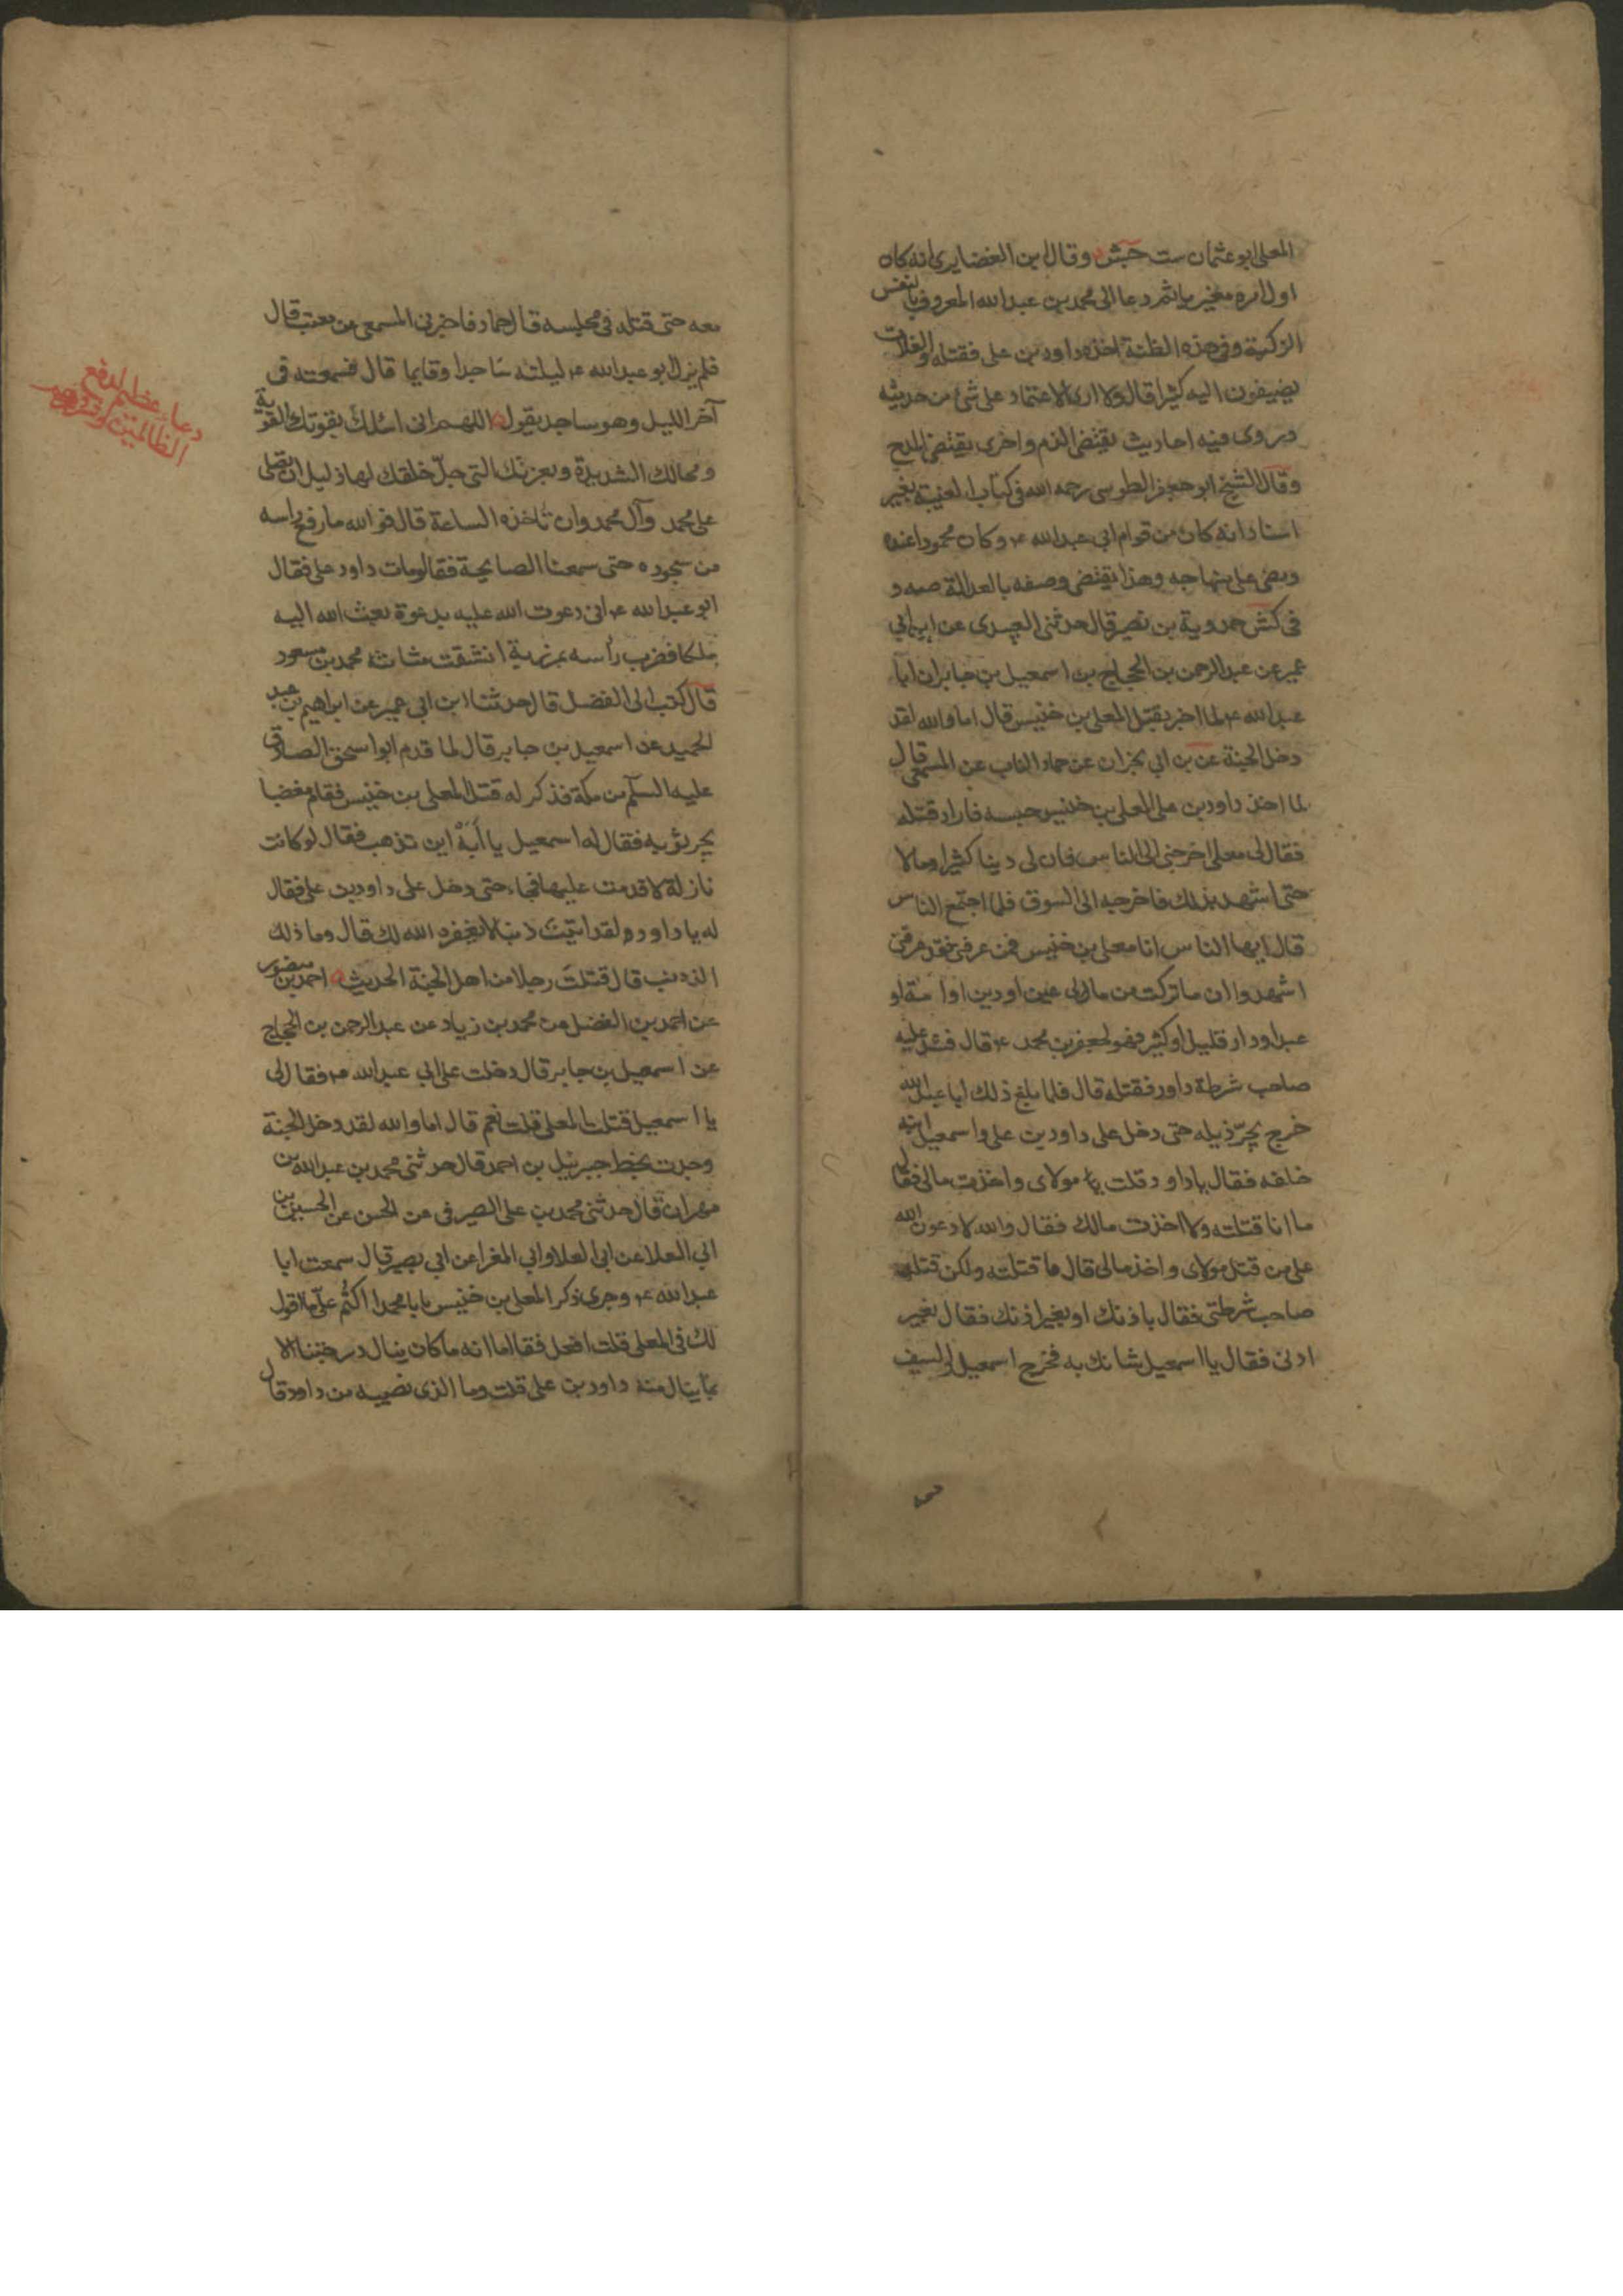 المعلى ابو عثمان ست جش وقال ابن الغضايرى انه كان
اول امره مغيريا ثم دعا الى محمد بن عبد الله المعروف بالنفس
الزكية وفى هذه الظنة اخذه داود بن على فقتله والغلات
يضيفون اليه كثيرا قال ولا ارى الاعتماد على شئ من حديثه
وروى فيه احاديث يقتضى الذم واخرى يقتضى المدح
وقال الشيخ ابو جعفر الطوسى رحمه الله فى كتاب الغيبة بغير
اسناد انه كان من قوام ابى عبد الله ع وكان محمودا عنده
ومضى على منهاجه وهذا يقتضى وصفه بالعدالة صه و
فى كش حمدوية بن نصير قال حدثنى العبيدى عن ابن ابي
عمير عن عبد الرحمن بن الحجاج بن اسمعيل بن جابر ان ابا
عبد الله ع لما اخبر بقتل المعلى بن خنيس قال اما والله لقد
دخل الجنة عن بن ابي نجران عن حماد الناب عن المسمعى قال
لما اخذ داود بن على المعلى بن خنيس حبسه فاراد قتله
فقال لى معلى اخرجنى الى الناس فان لى دينا كثيرا ومالا
حتى اشهد بذلك فاخرجه الى السوق فلما اجتمع الناس
قال ايها الناس انا معلى بن خنيس فمن عرفنى فقد عرفنى
اشهدوا ان ما تركت من مال لى عين او دين او امة او
عبد او دار قليل او كثير فهو لجعفر بن محمد ع قال فشد عليه
صاحب شرطة داود فقتله قال فلما بلغ ذلك ابا عبد الله
خرج يجرّ ذيله حتى دخل على داود بن على واسمعيل ابنه
خلفه فقال يا داود قتلت مولاى واخذت مالى فقال
ما انا قتلته ولا اخذت مالك فقال والله لادعون الله
على من قتل مولاى واخذ مالى قال ما قتلته ولكن قتله
صاحب شرطتى فقال باذنك او بغير اذنك فقال بغير
اذنى فقال يا اسمعيل شانك به فخرج اسمعيل والسيف
معه حتى قتله فى مجلسه قال حماد فاخبرنى المسمعى عن معتب قال
فلم يزل ابو عبد الله ع ليلته ساجدا وقايما قال فسمعته فى
آخر الليل وهو ساجد يقول اللهم انى اسئلك بقوتك القوية
ومحالك الشديدة وبعزتك التى جلّ خلقك لها ذليل ان تصلى
على محمد وآل محمد وان تاخذه الساعة قال فو الله ما رفع راسه
من سجوده حتى سمعنا الصايحة فقالوا مات داود على فقال
ابو عبد الله ع انى دعوت الله عليه بدعوة بعث الله اليه
ملكا فضرب رأسه بمرزبة انشقت مثانته محمد بن مسعود
قال كتب الى الفضل قال حدثنا ابن ابى عمير عن ابراهيم بن عبد
الحميد عن اسمعيل بن جابر قال لما قدم ابو اسحق الصادق
عليه السلم من مكة فذكر له قتل المعلى بن خنيس فقام مغضبا
يجر ثوبه فقال له اسمعيل يا أبة اين تذهب فقال لو كانت
نازلة لاقدمت عليها فجاء حتى دخل على داود بن على فقال
له يا داود لقد اتيت ذنبا لا يغفره الله لك قال وما ذلك
الذنب قال قتلت رجلا من اهل الجنة الحديث احمد بن منصور
عن احمد بن الفضل عن محمد بن زياد عن عبد الرحمن بن الحجاج
عن اسمعيل بن جابر قال دخلت على ابي عبد الله ع فقال لى
يا اسمعيل قتلت المعلى قلت نعم قال اما والله لقد دخل الجنة
وجدت بخط جبرئيل بن احمد قال حدثنى محمد بن عبد الله بن
مهران قال حدثنى محمد بن على الصيرفى عن الحسن عن الحسين بن
ابى العلا عن ابى العلا وابي المغرا عن ابى بصير قال سمعت ابا
عبد الله ع وجرى ذكر المعلى بن خنيس يا با محمد اكتم علىّ ما اقول
لك فى المعلى قلت افعل فقال اما انه ما كان ينال درجتنا الا
بما ينال منه داود بن على قلت وما الذى نصيبه من داود قال
دعاء عظيم لدفع
الظالمين